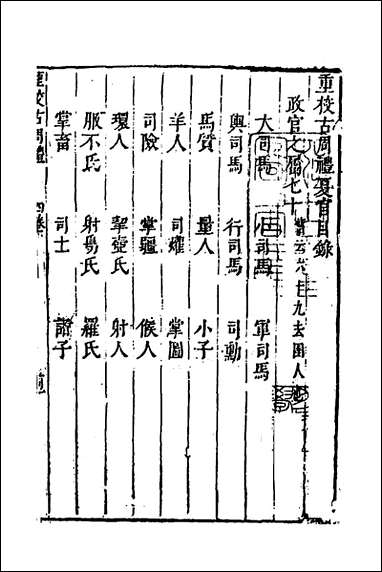 重校古周禮夏官目錄
政官之屬七十
大司馬 小司馬 軍司馬
輿司馬 行司馬 司勳
馬質 量人 小子
羊人 司爟 掌固
司險 掌疆 候人
環人 挈壺氏 射人
服不氏 射鳥氏 羅氏
掌畜 司士 諸子
重校古周禮